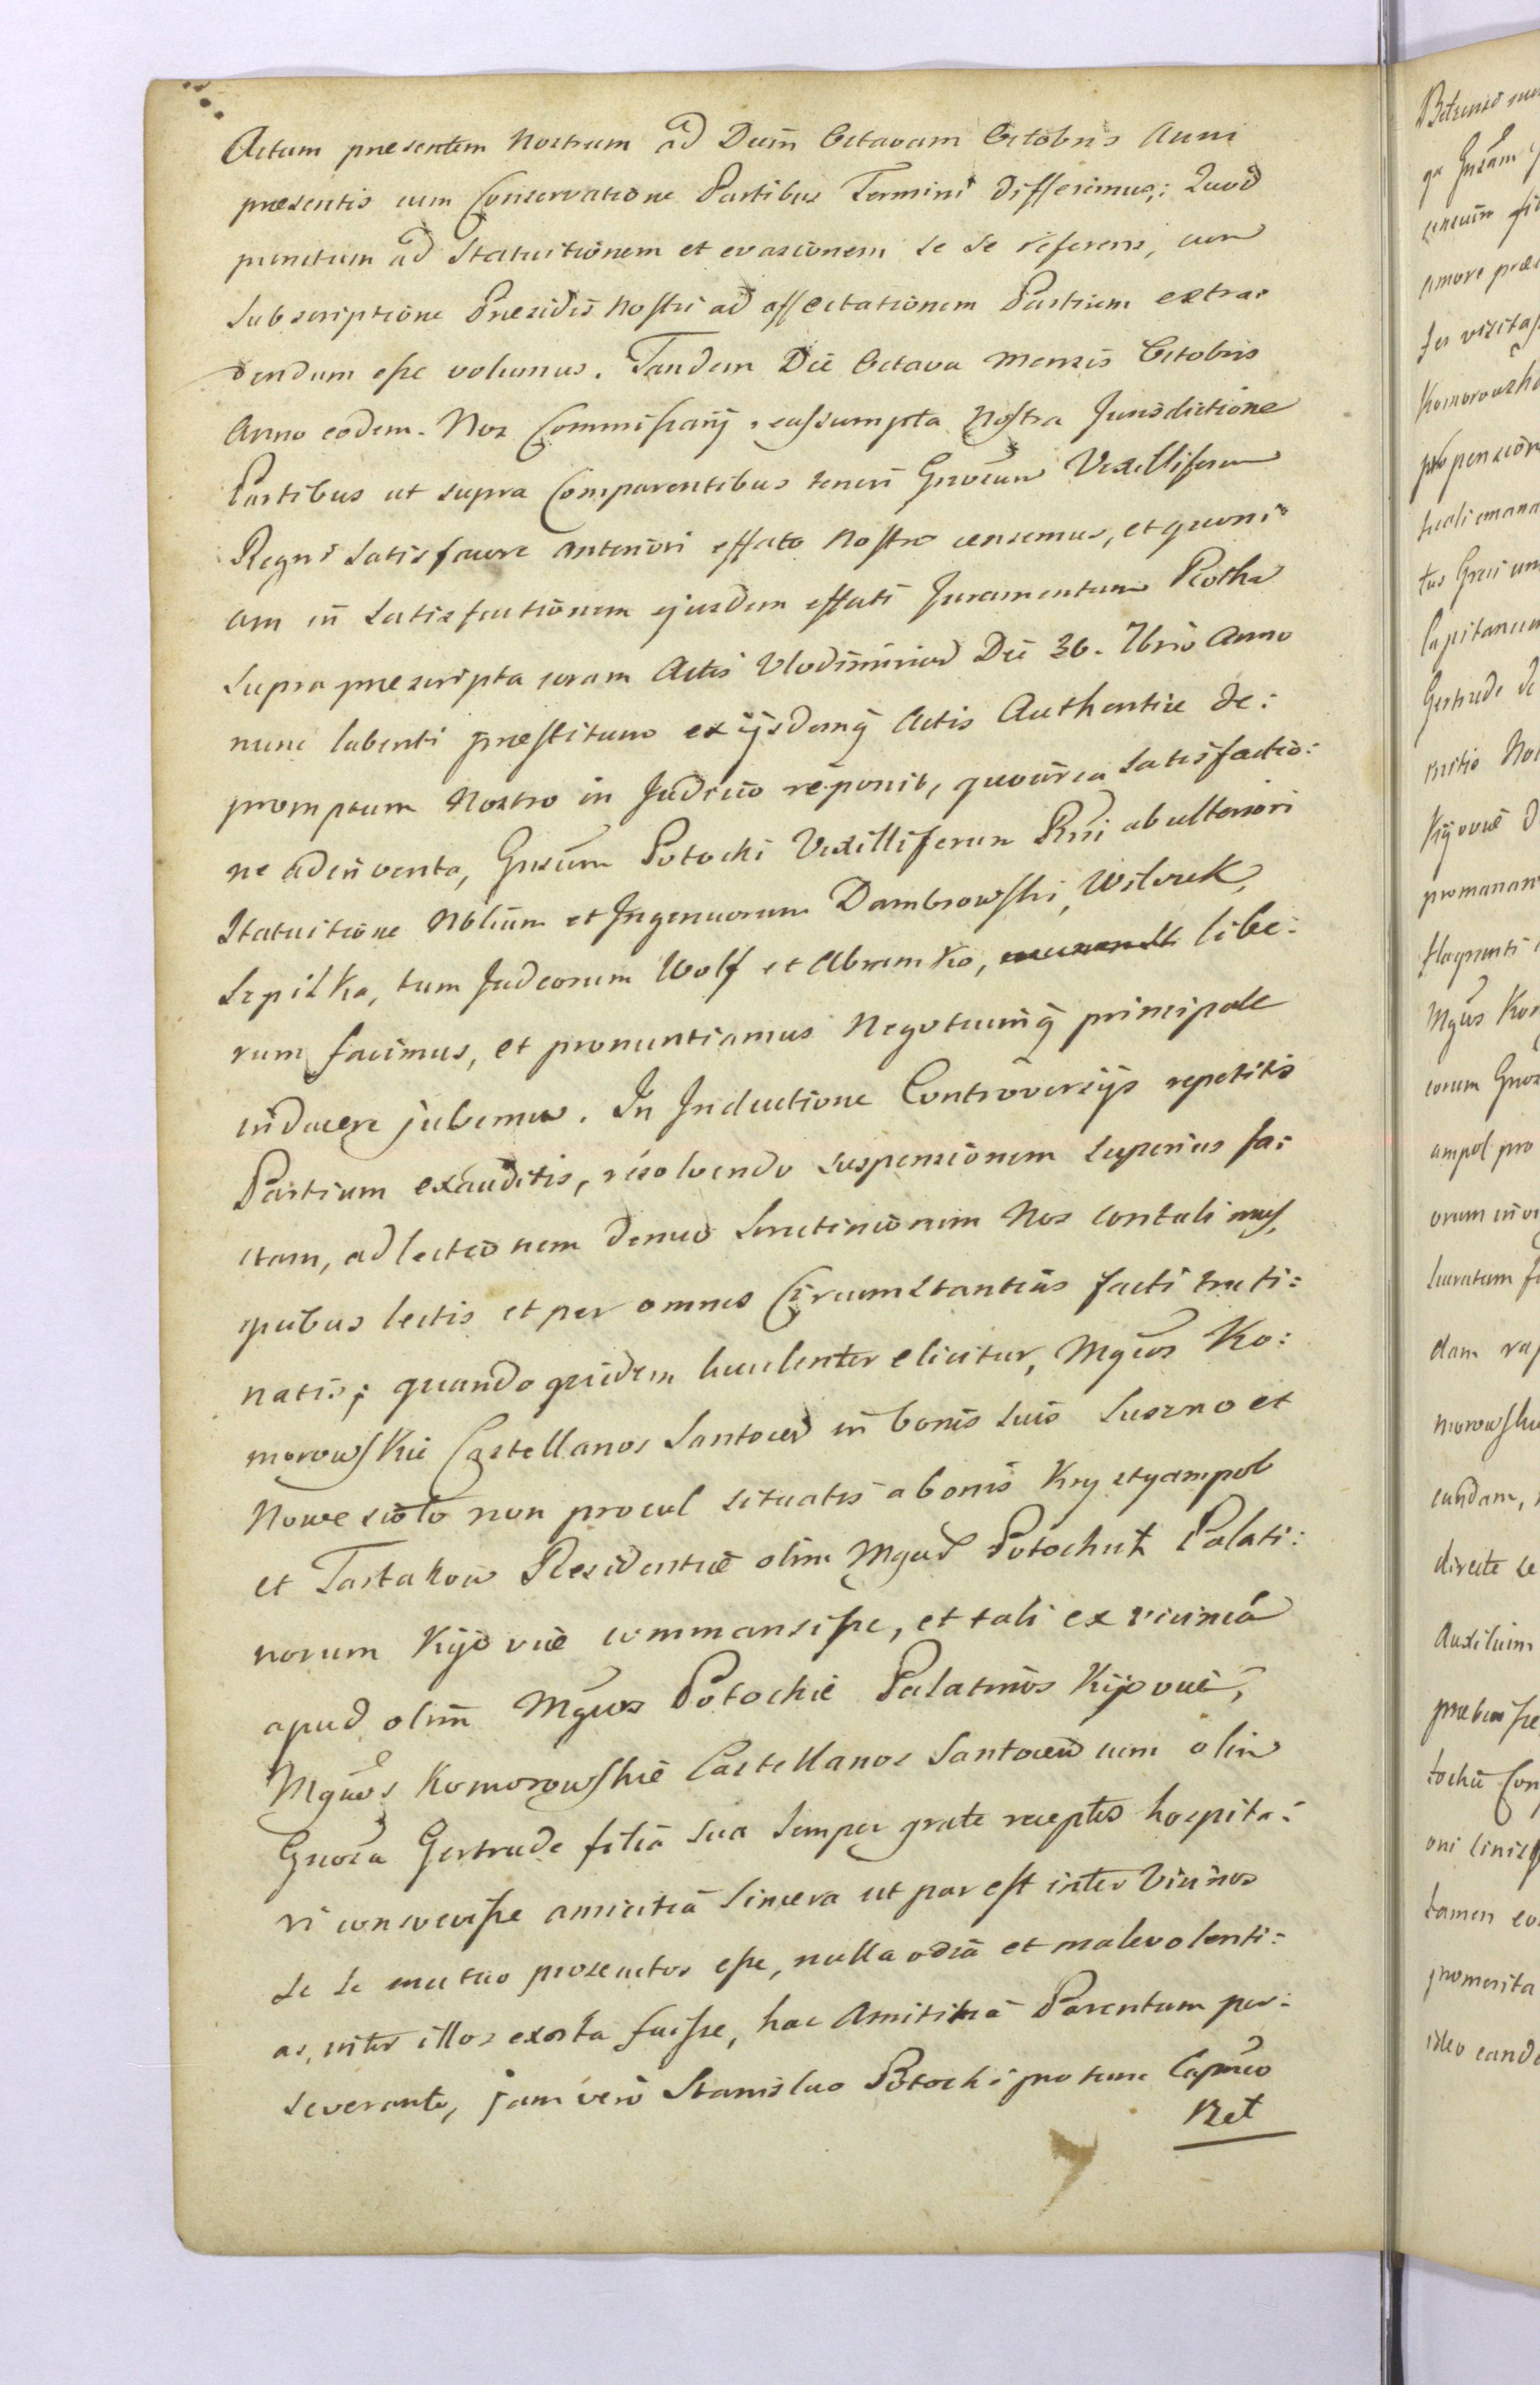 Actum presentem Nostrum ad Diem Octavam Octobris Anni
presentis cum Conservatione Partibus Termini differimus; Quod
punctum ad Statuitionem et evasionem se se referens, cum
Subscriptione Præsidis Nostri ad affectationem Partium extra-
dendum esse volumus. Tandem Die Octava Mensis Octobris
Anno eodem. Nos Commissarij reassumpta Nostra Jurisdictione
Partibus ut supra Comparentibus teneri Gnosum Vexilliferum
Regni Satisfacere anteriori effato Nostro censemus, et quoni-
am in Satisfactionem ejusdem effati Juramentum Rotha
Supra præscripta coram Actis Vlodimirien Die 30. 7bris Anno
nunc labenti præstitum ex ijsdemq Actis Authentice de:
promptum Nostro in Judicio reponit, quocirca Satisfactio:
ne adinventa, Gnsum Potocki Vexilliferum Rni ab ulteriori
Statuitione Nblium et Ingenuorum Dambrowski, Wilczek,
Szpilka, tum Judeorum Wolf et Abramko, libe:
rum facimus, et pronuntiamus Negotiumq principale
inducere jubemus. In Inductione Controversijs repetitis
Partium exauditis, resolvendo suspensionem superius fa:
ctam, ad lectionem demum Scrutiniorum Nos contulimus,
quibus lectis et per omnes Circumstantias facti truti:
natis; quandoquidem luculenter elicitur, Mgcos Ko:
morowskie Castellanos Santocen in bonis suis Suszno et
Nowesioło non procul situatis a bonis Krystyampol
et Tartakow Residentiæ olim Mgcor Potockich Palati:
norum Kijoviæ commansisse, et tali ex vicinia
apud olim Mgcos Potockie Palatinos Kijoviæ,
Mgcos Komorowskie Castellanos Santocen cum olim
Gnosa Gertrude filia sua semper grate receptos hospita:
ri consvevisse amicitia sincera ut par est inter Vicinos
se se mutuo prosecutos esse, nulla odia et malevolenti:
as, inter illos exorta fuisse, hac Amicitia Parentum per:
severante, jam vero Stanislao Potocki pro tunc Capneo
Bet